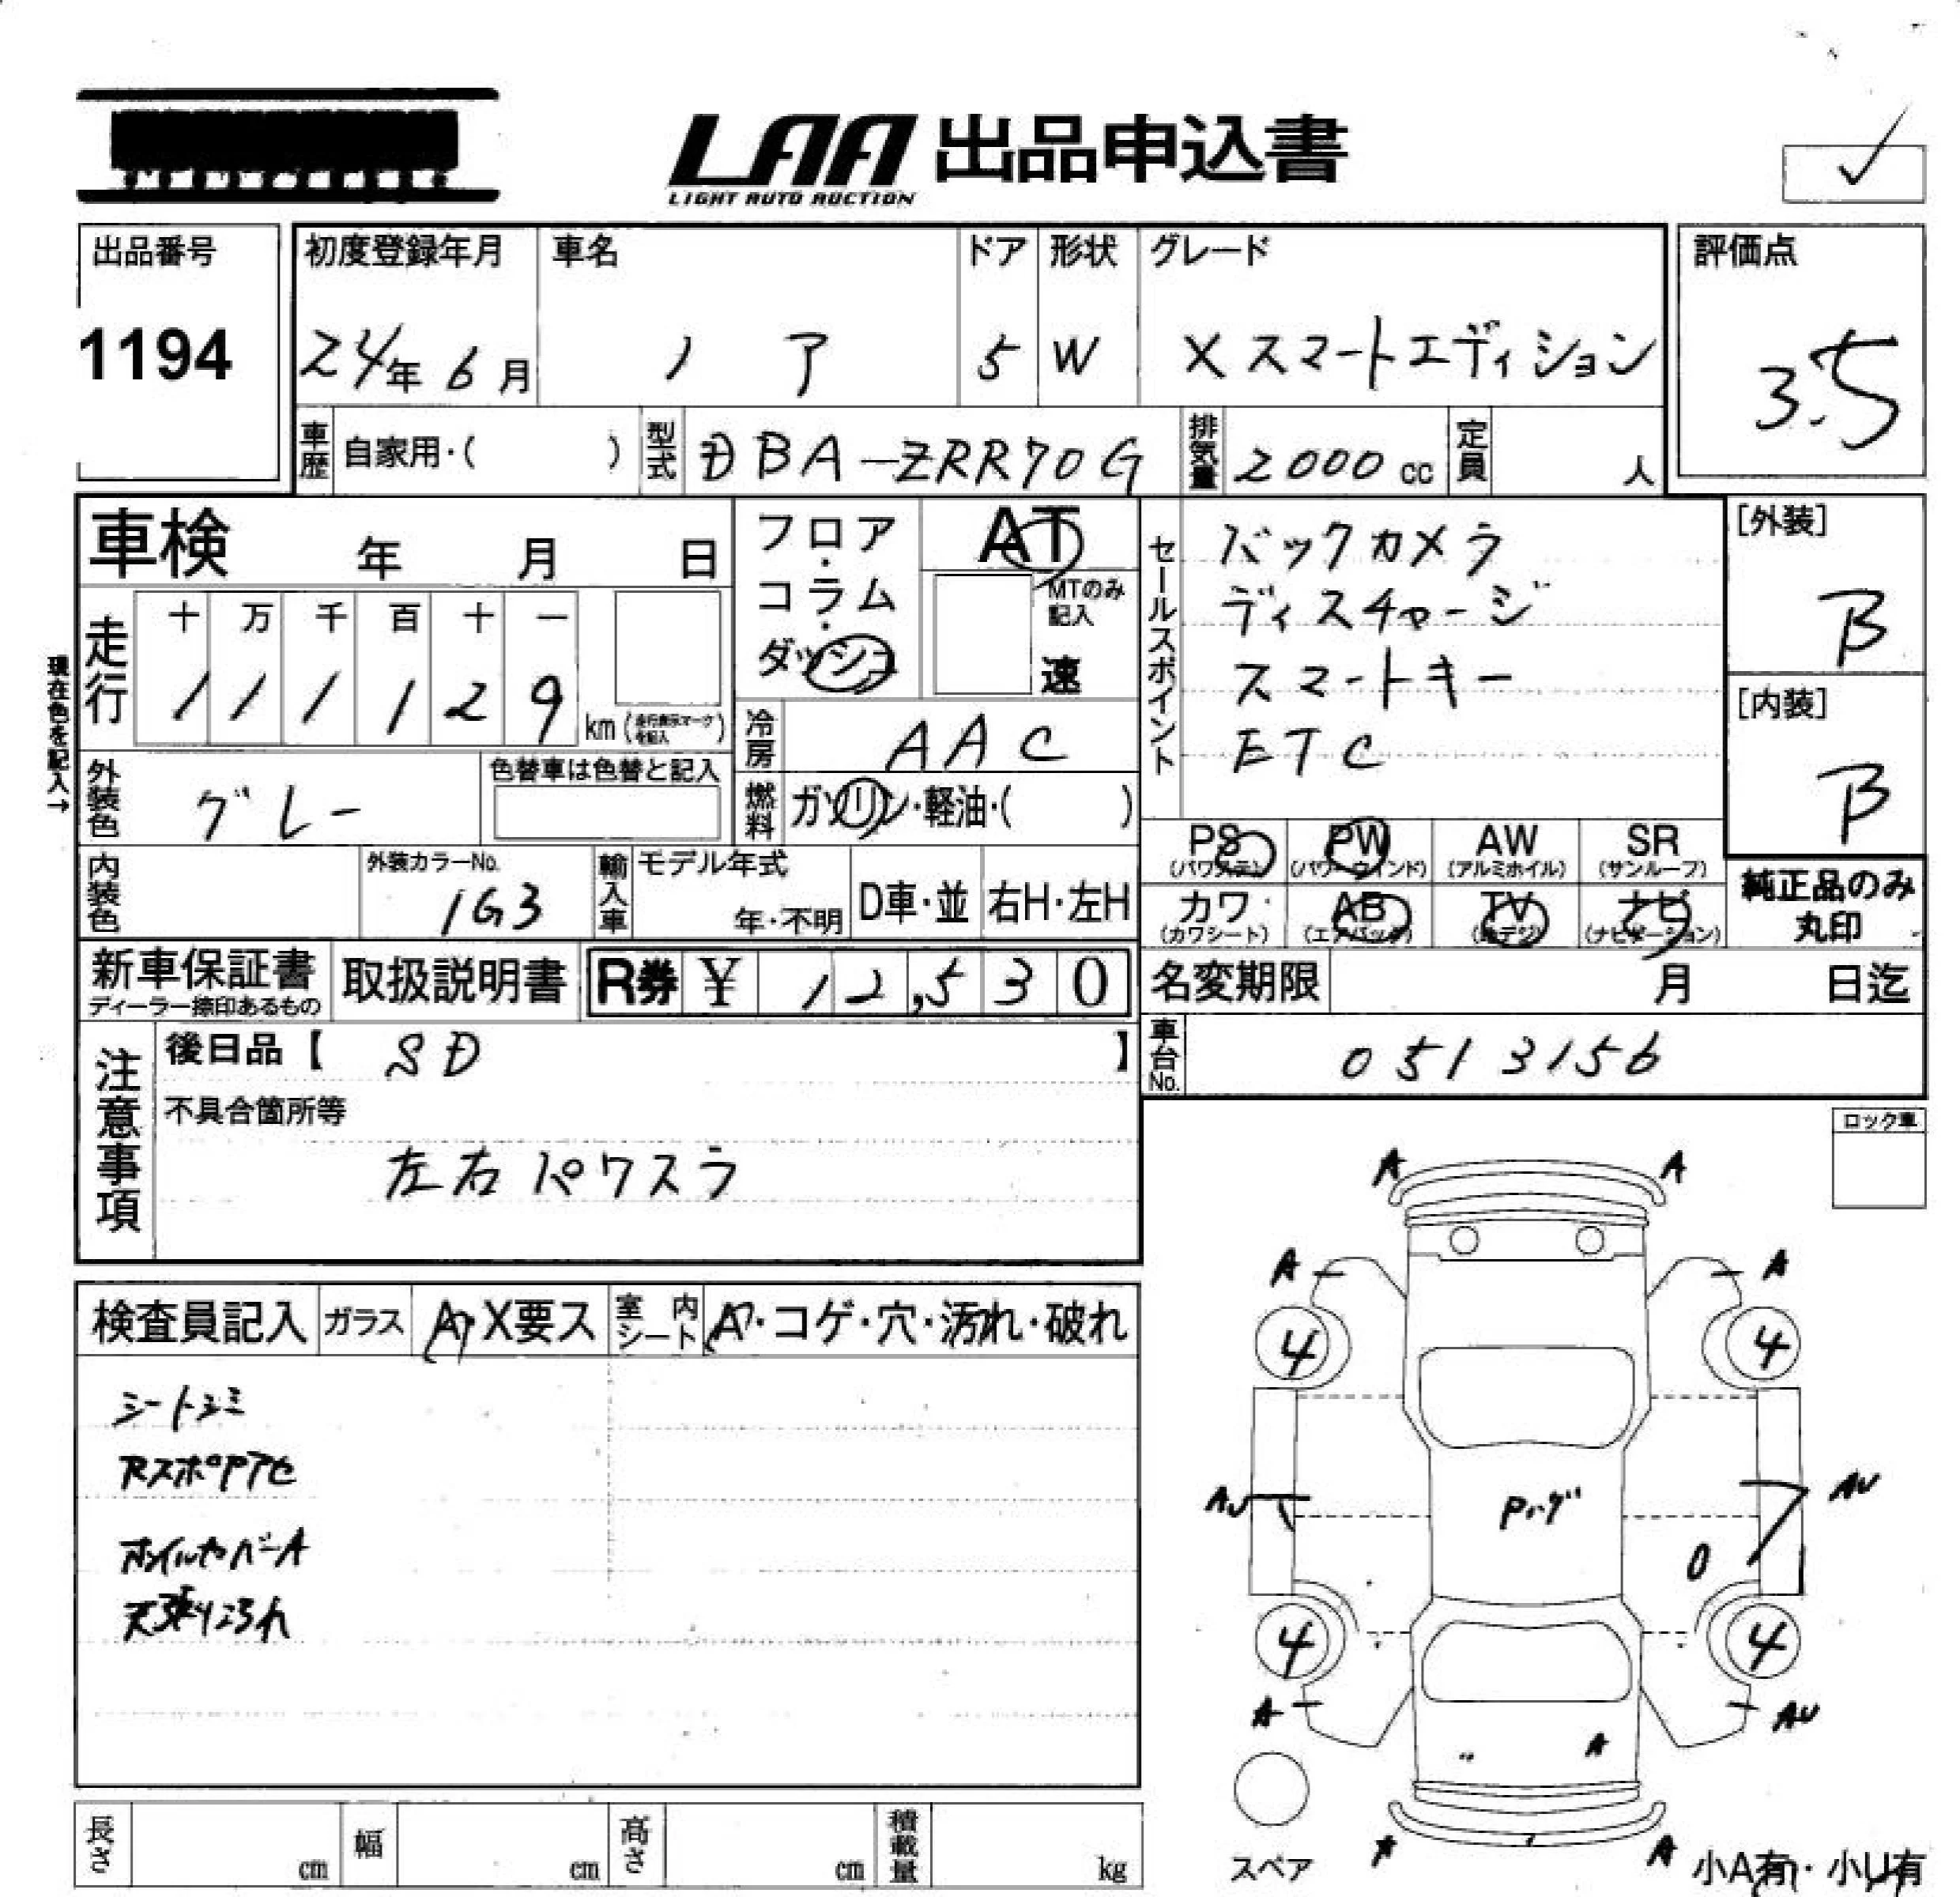 LAA 出品申込書
LIGHT AUTO AUCTION
出品番号
1194
初度登録年月
24年 6月
車名
ノア
ドア
5
形状
W
グレード
X スマートエディション
評価点
3.5
車歴
自家用・( )
型式
DBA-ZRR70G
排気量
2000 cc
定員
人
車検 年 月 日
フロア・コラム・ダッシュ
AT
MTのみ記入
速
セールスポイント
バックカメラ
ディスチャージ
スマートキー
ETC
[外装]
B
[内装]
B
現在色を記入→
走行
十 万 千 百 十 一
1 1 1 1 2 9
km (走行表示マークを記入)
冷房
AAC
外装色
グレー
色替車は色替と記入
燃料
ガソリン・軽油・( )
PS
(パワステ)
PW
(パワーウィンド)
AW
(アルミホイル)
SR
(サンルーフ)
カワ
(カワシート)
AB
(エアバック)
TV
(地デジ)
ナビ
(ナビゲーション)
純正品のみ
丸印
内装色
外装カラーNo.
1G3
輸入車
モデル年式
年・不明
D車・並
右H・左H
新車保証書
ディーラー捺印あるもの
取扱説明書
R券 ¥ 12,530
名変期限 月 日迄
注意事項
後日品【 SD 】
車台No.
0513156
不具合箇所等
左右パワスラ
ロック車
検査員記入
ガラス
A・X要ス
室内シート
A・コゲ・穴・汚れ・破れ
シートシミ
RスポPアセ
ホイルカバーA
天張り汚れ
A A
A A
4 4
AU AU
Pハゲ
4 4
A AU
A
A A
スペア
小A有・小U有
長さ cm
幅 cm
高さ cm
積載量 kg